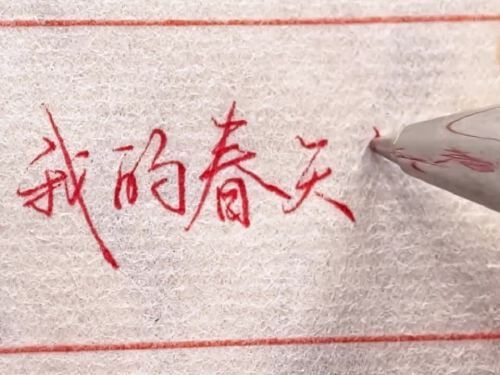 我的春天